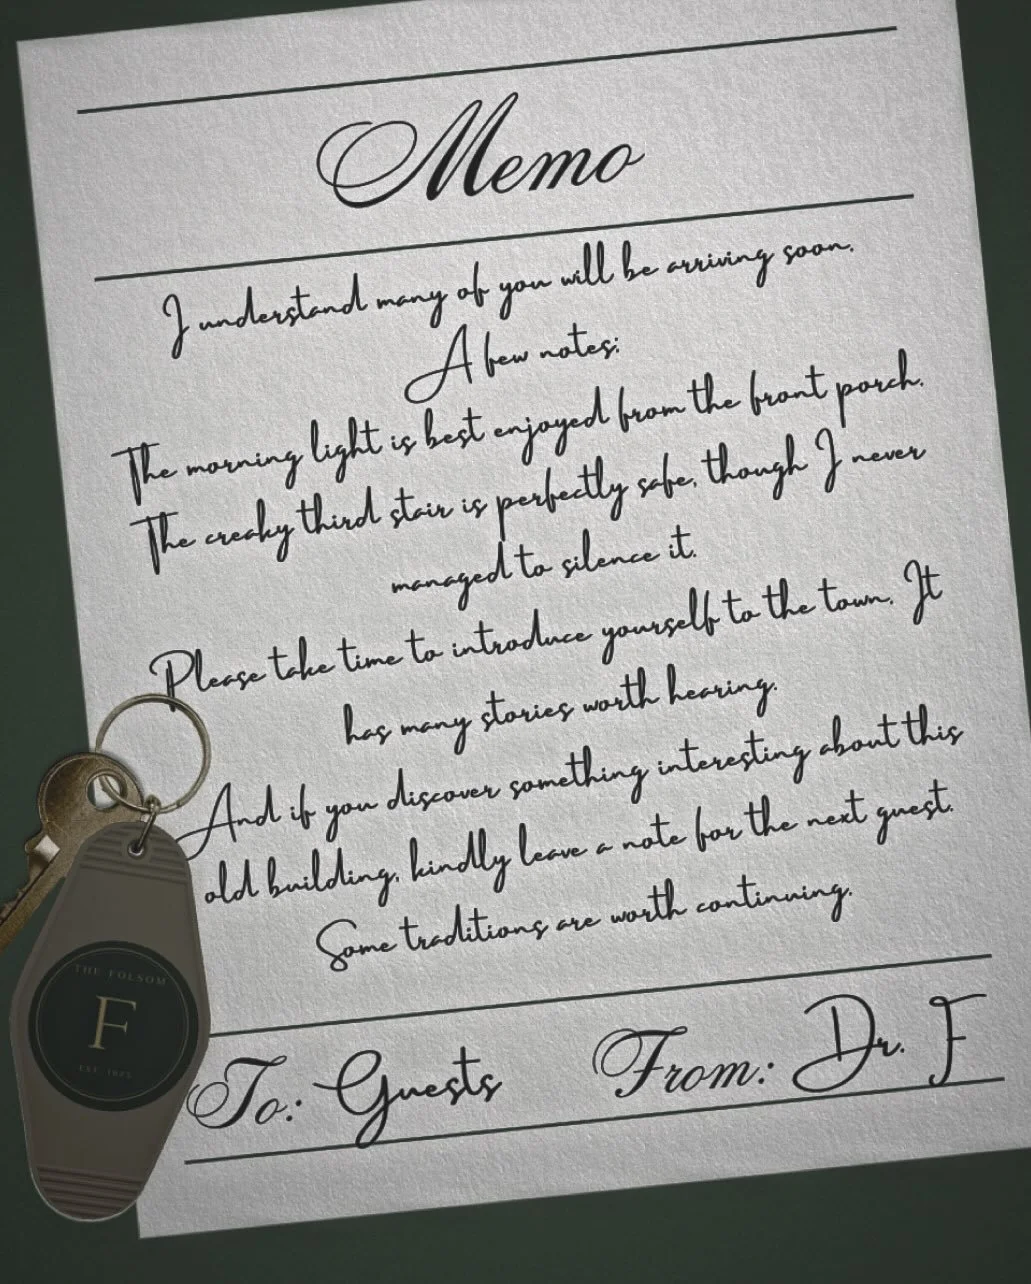 Memo
I understand many of you will be arriving soon.
A few notes:
The morning light is best enjoyed from the front porch.
The creaky third stair is perfectly safe, though I never
managed to silence it.
Please take time to introduce yourself to the town. It
has many stories worth hearing.
And if you discover something interesting about this
old building, kindly leave a note for the next guest.
Some traditions are worth continuing.
To: Guests From: Dr. F
THE FOLSOM
F
EST.